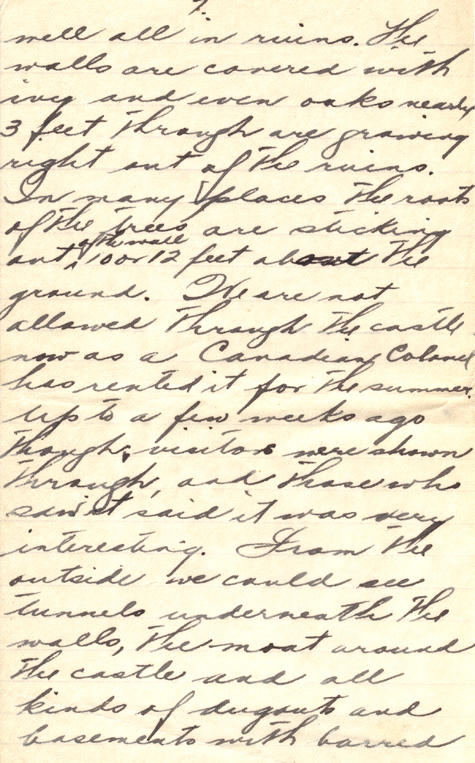 7.
well all in ruins. The
walls are covered with
ivy and even oaks nearly
3 feet through are growing
right out of the ruins.
In many places the roots
of the trees are sticking
out of the wall 10 or 12 feet above the
ground. We are not
allowed through the castle
now as a Canadian Colonel
has rented it for the summer.
Up to a few weeks ago
though, visitors were shown
through, and those who
saw it said it was very
interesting. From the
outside we could see
tunnels underneath the
walls, the moat around
the castle and all
kinds of dugouts and
basements with barred